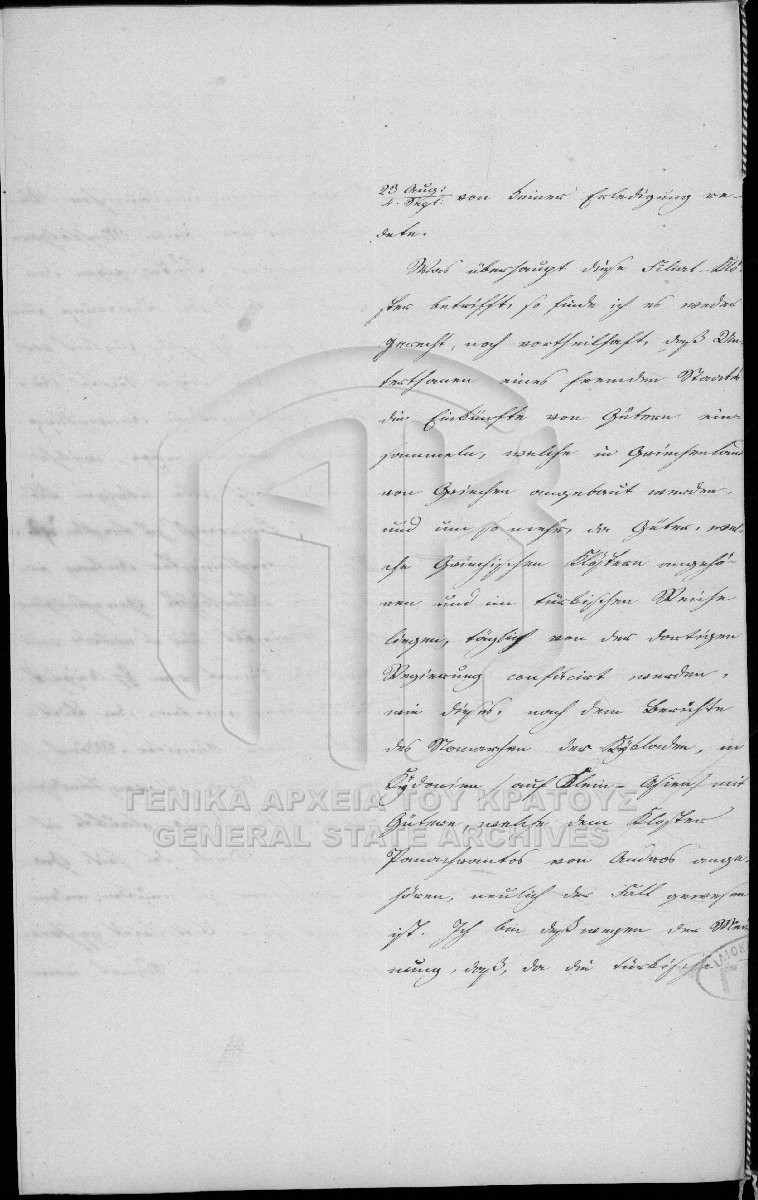 23 Aug: / 4. Sept: von keiner Erledigung re-
dete.
Was überhaupt diese Filial-Klö-
ster betrifft, so finde ich es weder
gerecht, noch vortheilhaft, daß Un-
terthanen eines fremden Staats
die Einkünfte von Gütern ein-
sammeln, welche in Griechenland
von Griechen angebaut werden,
und um so mehr, da Güter, wel-
che Griechischen Klöstern angehö-
ren und im türkischen Reiche
liegen, täglich von der dortigen
Regierung confiscirt werden,
wie dieses, nach dem Berichte
des Nomarchen der Kykladen, in
Kydonien (auf Klein-Asien) mit
Gütern, welche dem Kloster
Panachrantos von Andros ange-
hören, neulich der Fall gewesen
ist. Ich bin deßwegen der Mei-
nung, daß, da die türkische
ΓΕΝΙΚΑ ΑΡΧΕΙΑ ΤΟΥ ΚΡΑΤΟΥΣ
GENERAL STATE ARCHIVES